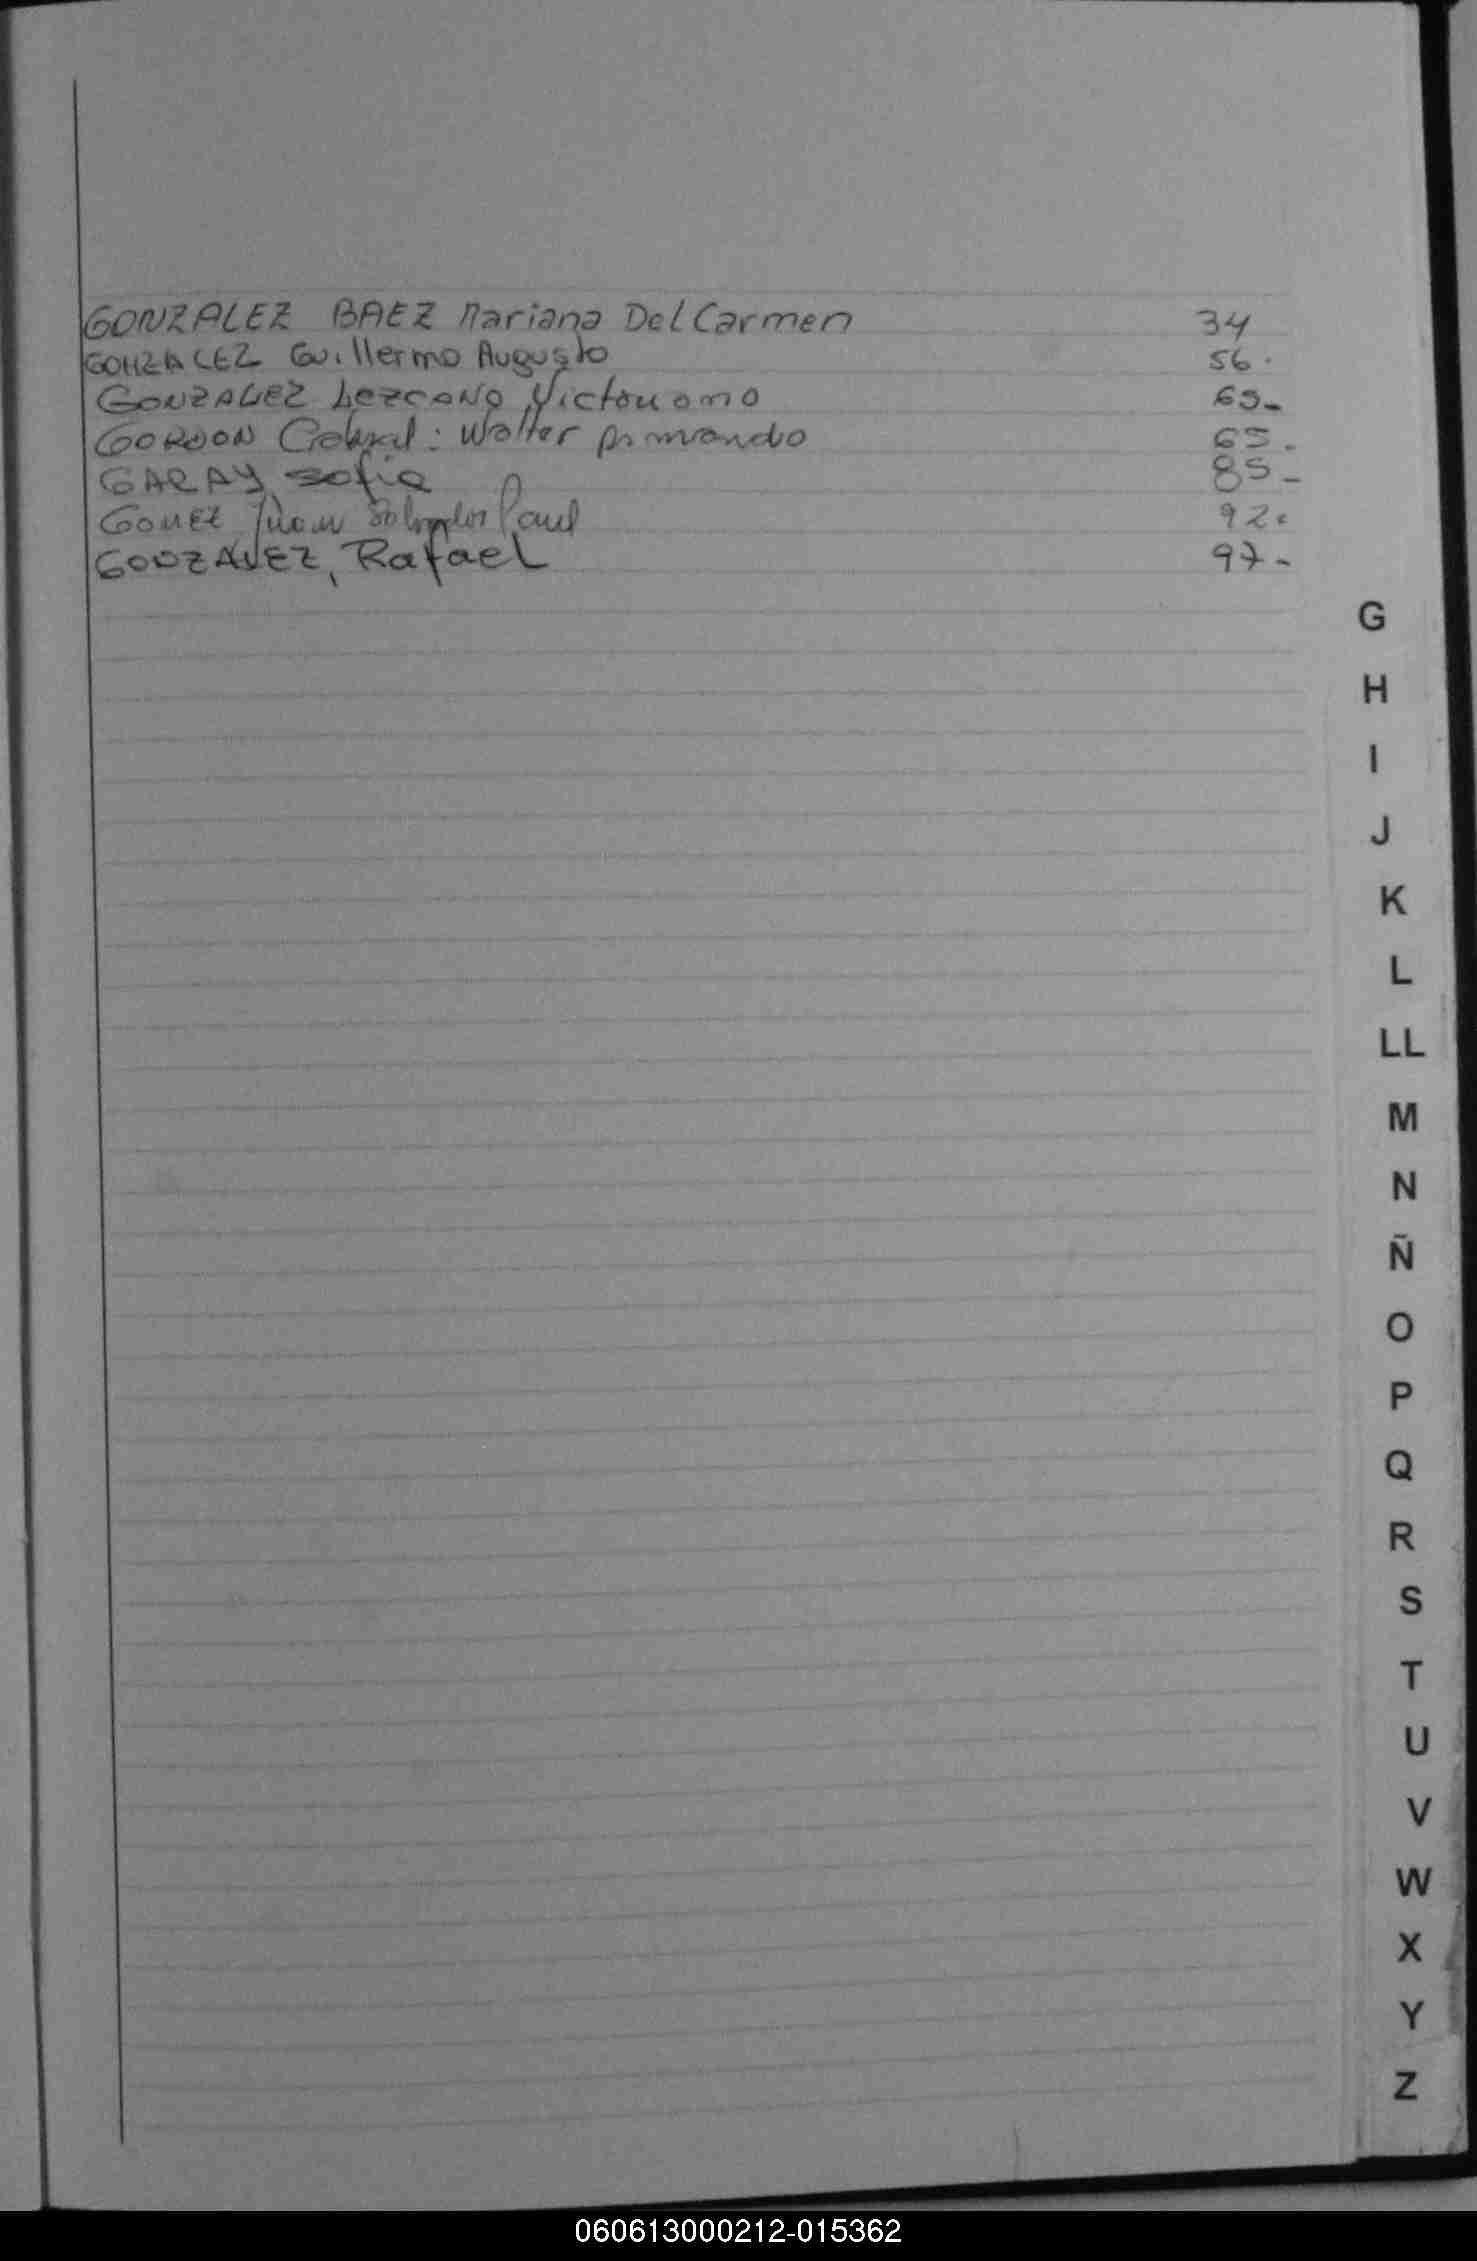 GONZALEZ BAEZ Mariana Del Carmen 34
GONZALEZ Guillermo Augusto 56.
GONZALEZ Lezcano, Victor 63-
GORDON Walter Armando 65.
GARAY, Sofia 85-
GOMEZ Juan Salvador Paul 92.
GONZALEZ, Rafael 97-
G
H
I
J
K
L
LL
M
N
Ñ
O
P
Q
R
S
T
U
V
W
X
Y
Z
060613000212-015362